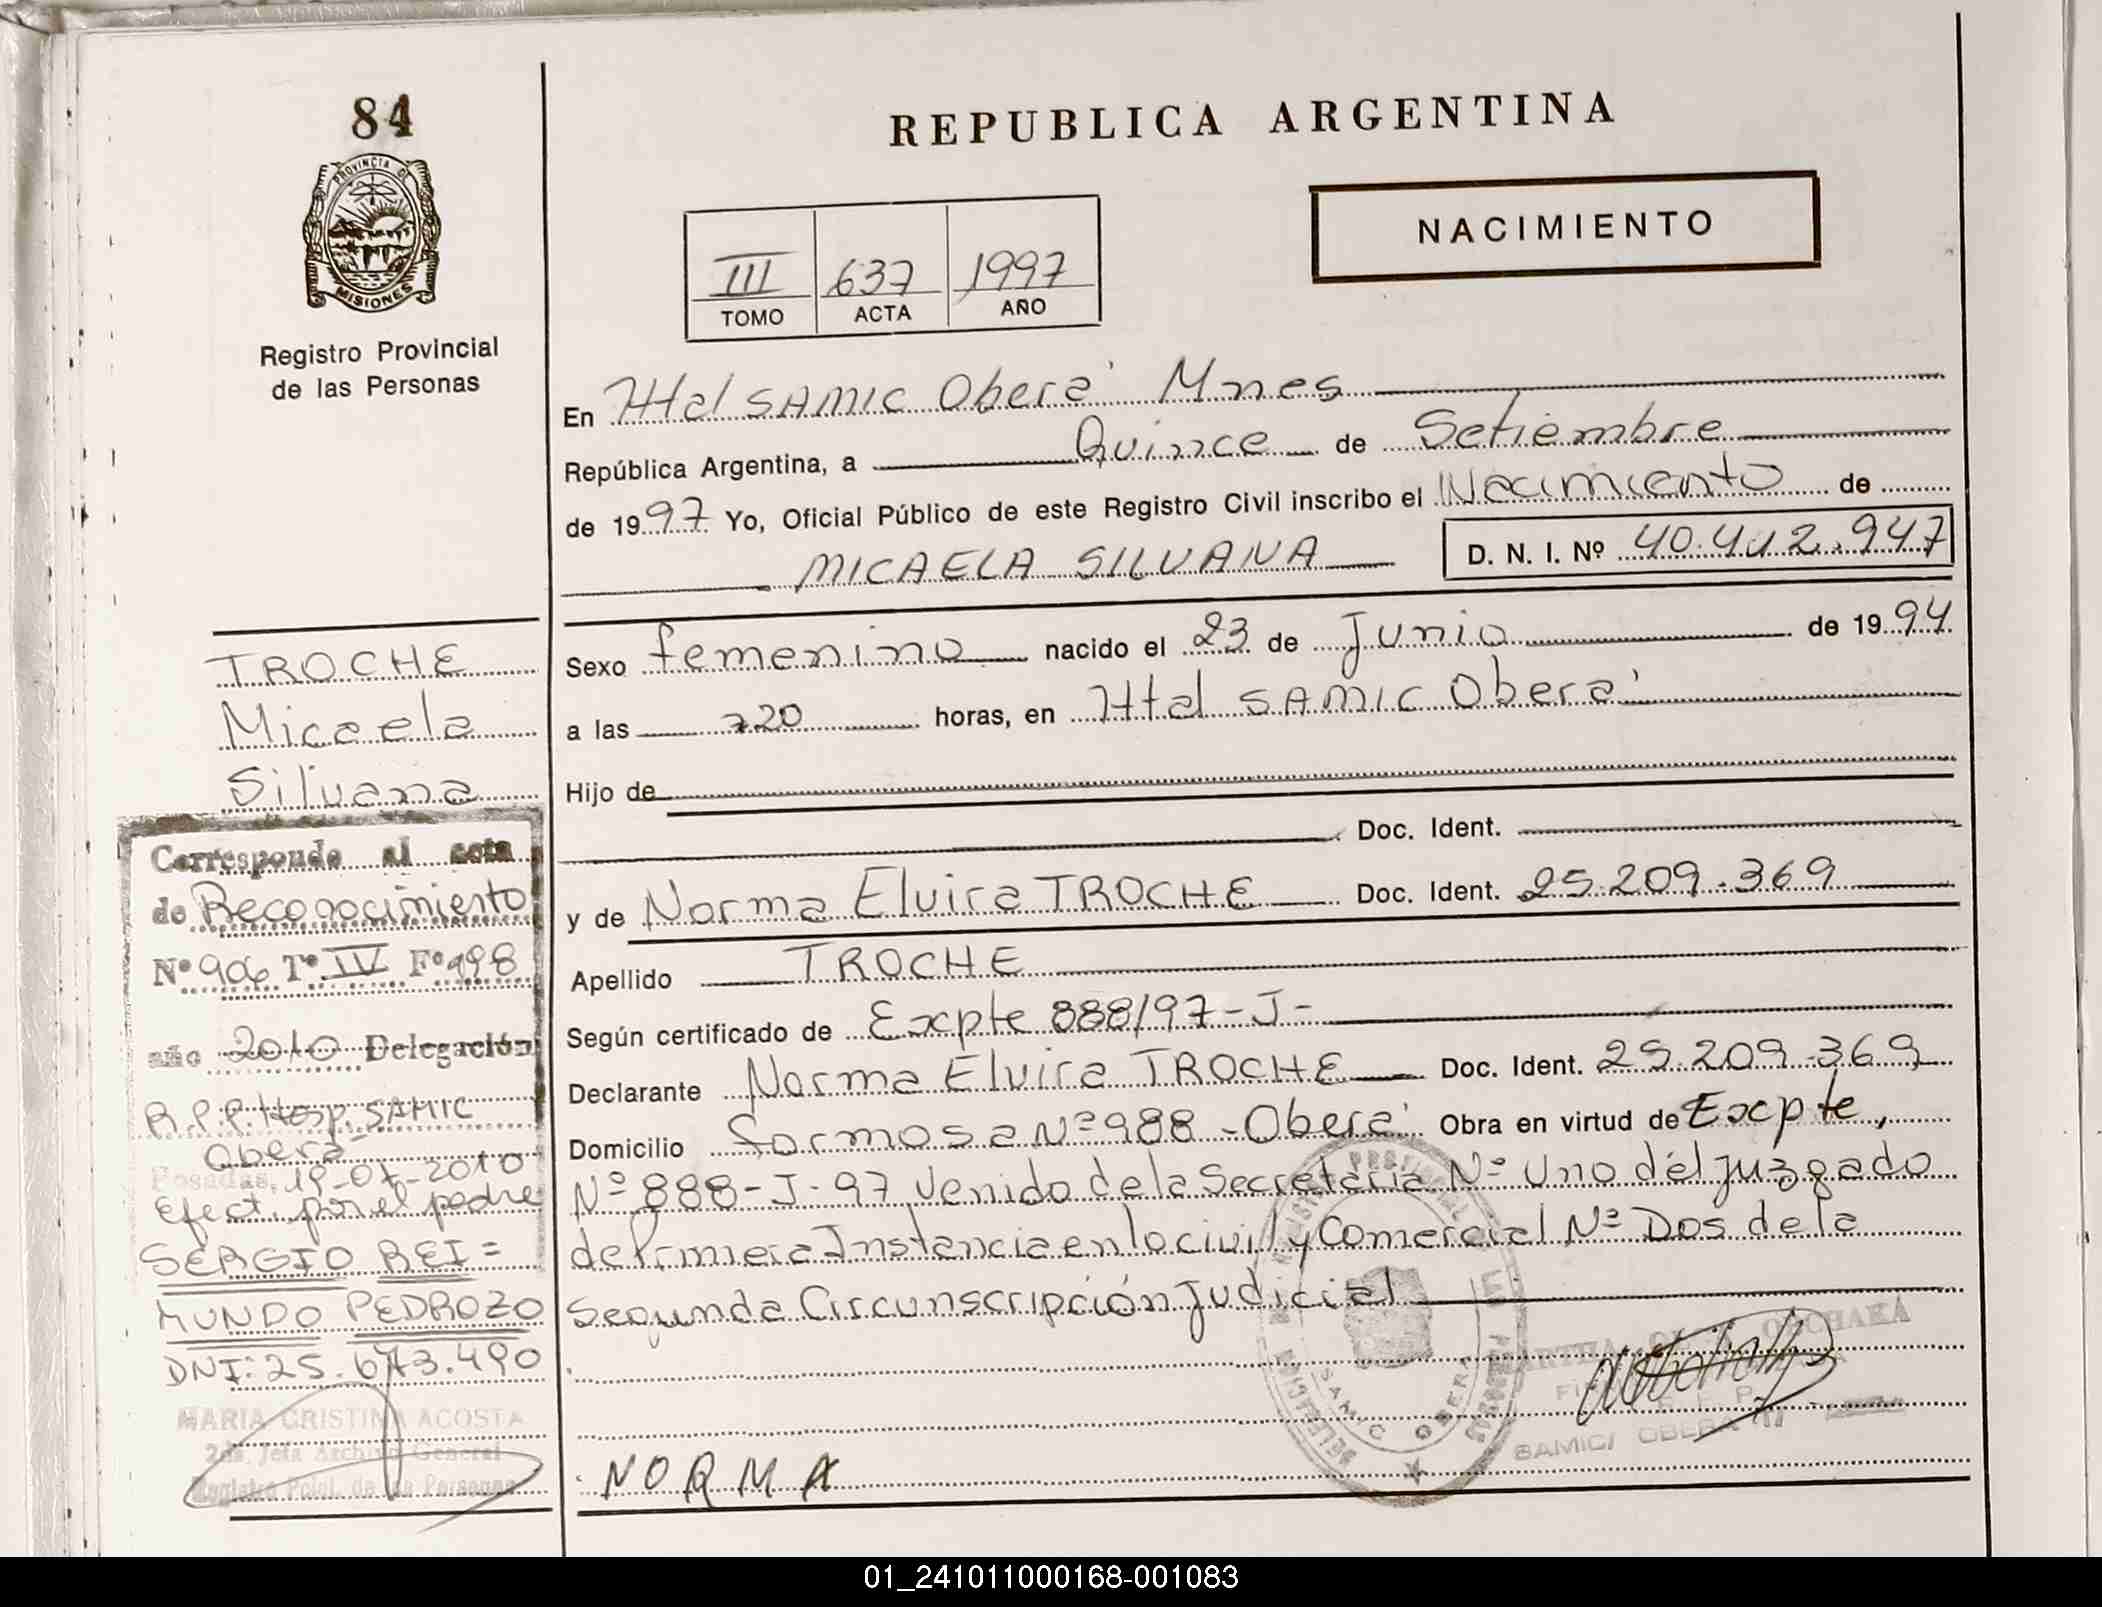 84
PROVINCIA DE
MISIONES
Registro Provincial
de las Personas
REPUBLICA ARGENTINA
NACIMIENTO
III 637 1997
TOMO ACTA AÑO
En Htal SAMIC Oberá Mnes
República Argentina, a Quince de Setiembre
de 1997 Yo, Oficial Público de este Registro Civil inscribo el Nacimiento de
MICAELA SILVANA D. N. I. Nº 40.412.947
Sexo femenino nacido el 23 de Junio de 1994
a las 720 horas, en Htal SAMIC Oberá
Hijo de
Doc. Ident.
y de Norma Elvira TROCHE Doc. Ident. 25.209.369
Apellido TROCHE
Según certificado de Excpte 888/97-J-
Declarante Norma Elvira TROCHE Doc. Ident. 25.209.369
Domicilio formosa Nº 988 - Oberá Obra en virtud de Excpte,
Nº 888-J-97 Venido de la Secretaria Nº Uno del Juzgado
de Primiera Instancia en lo civil y Comercial Nº Dos de la
Segunda Circunscripción Judicial
NORMA
TROCHE
Micaela
Silvana
Corresponde al acta
de Reconocimiento
Nº 906 Tº IV Fº 198
año 2010 Delegación
R.P.P. Hosp. SAMIC
Oberá
Posadas, 19-07-2010
Efect. por el padre
SERGIO REI=
MUNDO PEDROZO
DNI: 25.673.490
MARIA CRISTINA ACOSTA
2da. Jefa Archivo General
Registro Pcial. de las Personas
SAMIC OBERA
SAMIC OBERA
01_241011000168-001083